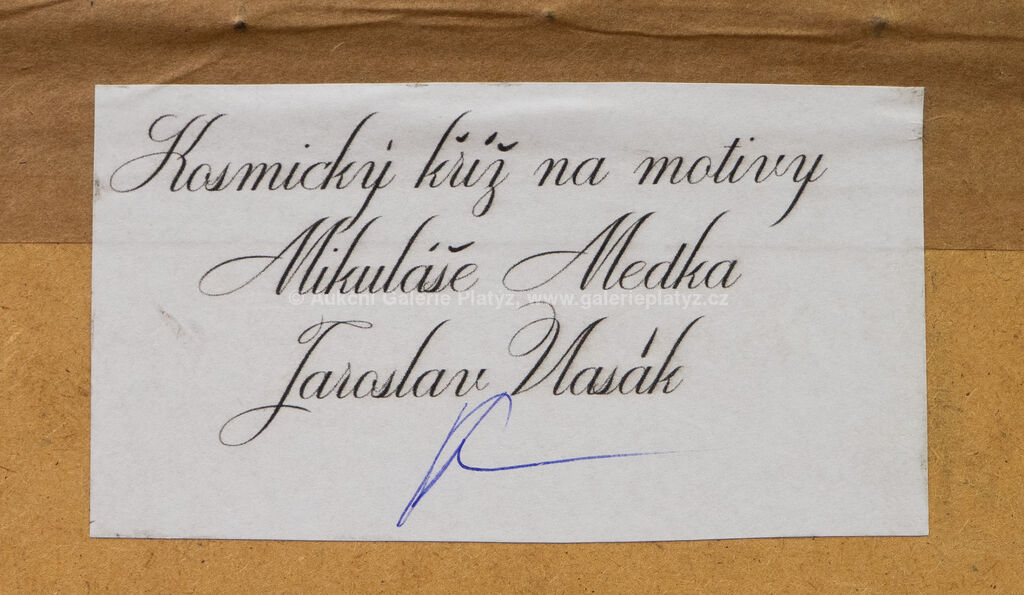 Kosmický kříž na motivy
Mikuláše Medka
© Aukční Galerie Platýz, www.galerieplatyz.cz
Jaroslav Vlasák